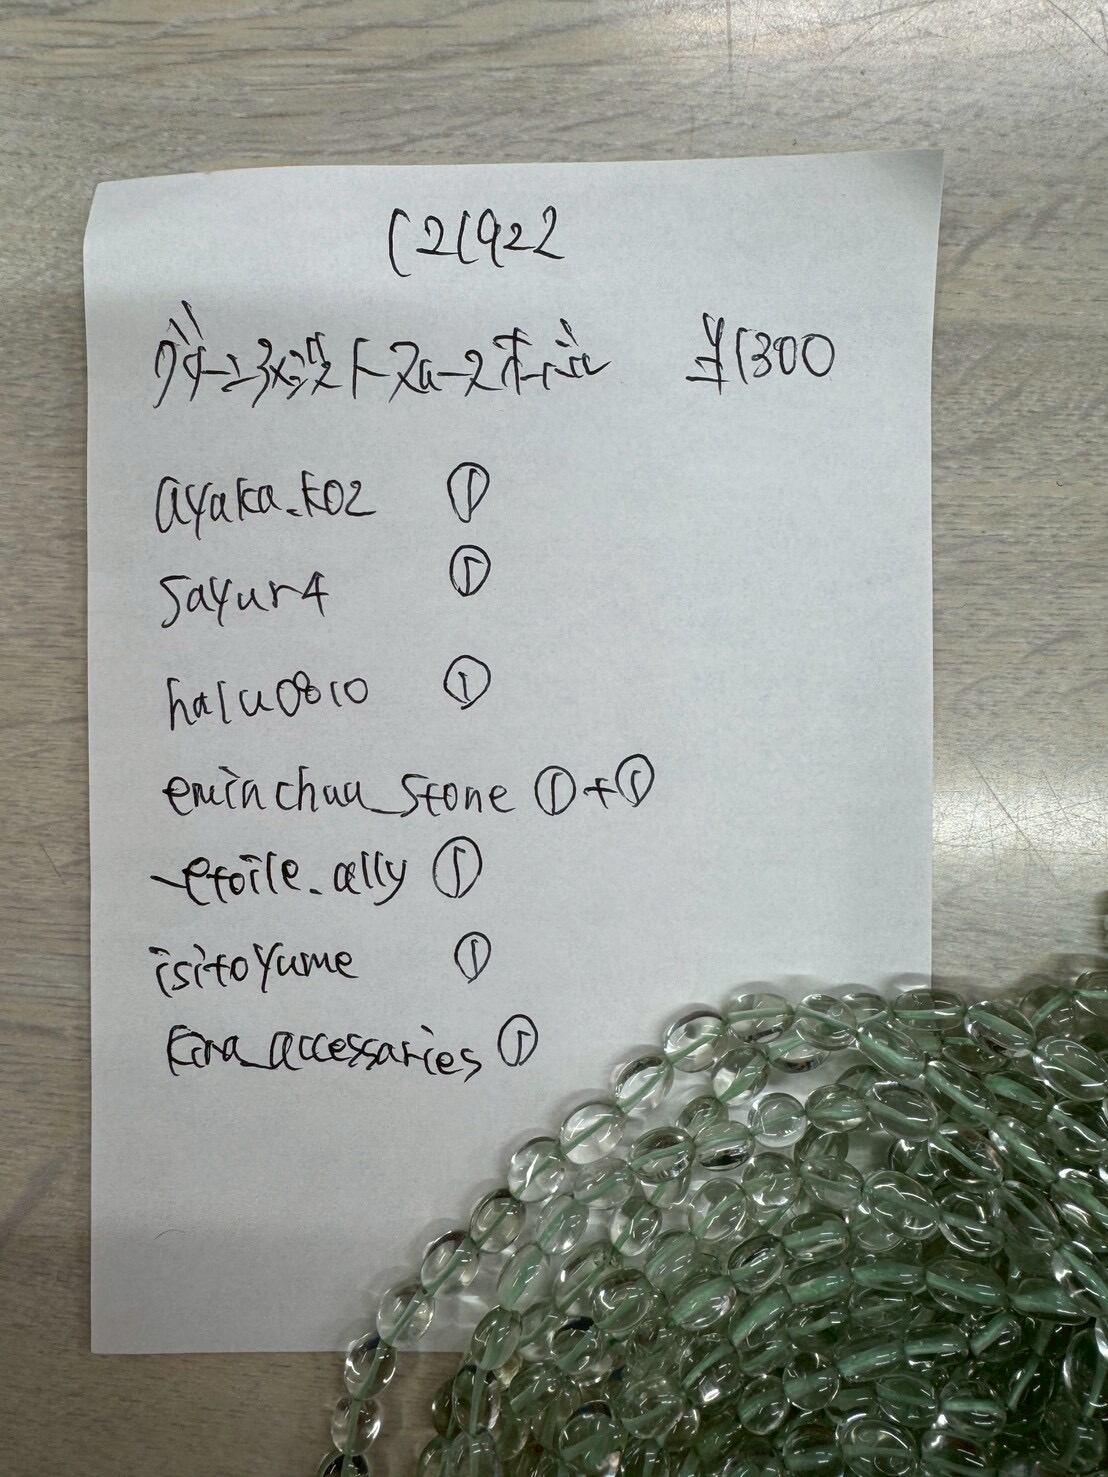 121922
¥1300
ayaka.k02 ①
sayur4 ①
halu0810 ①
eminchuu_stone ①+①
etoile.ally ①
isitoyume ①
kira_accessaries ①